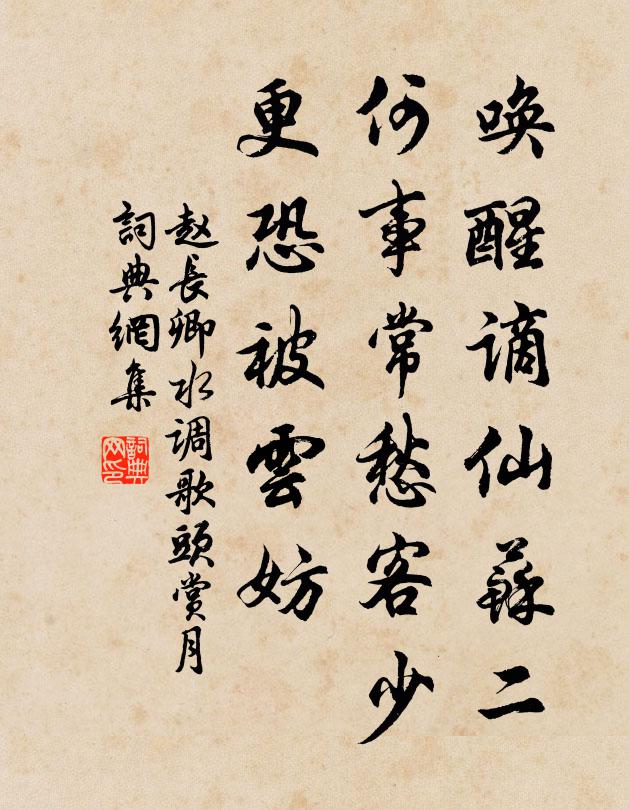 唤醒谪仙蘇二
何事常愁客少
更恐被雲妨
赵長卿水调歌頭賞月
詞典網集
詞典网印